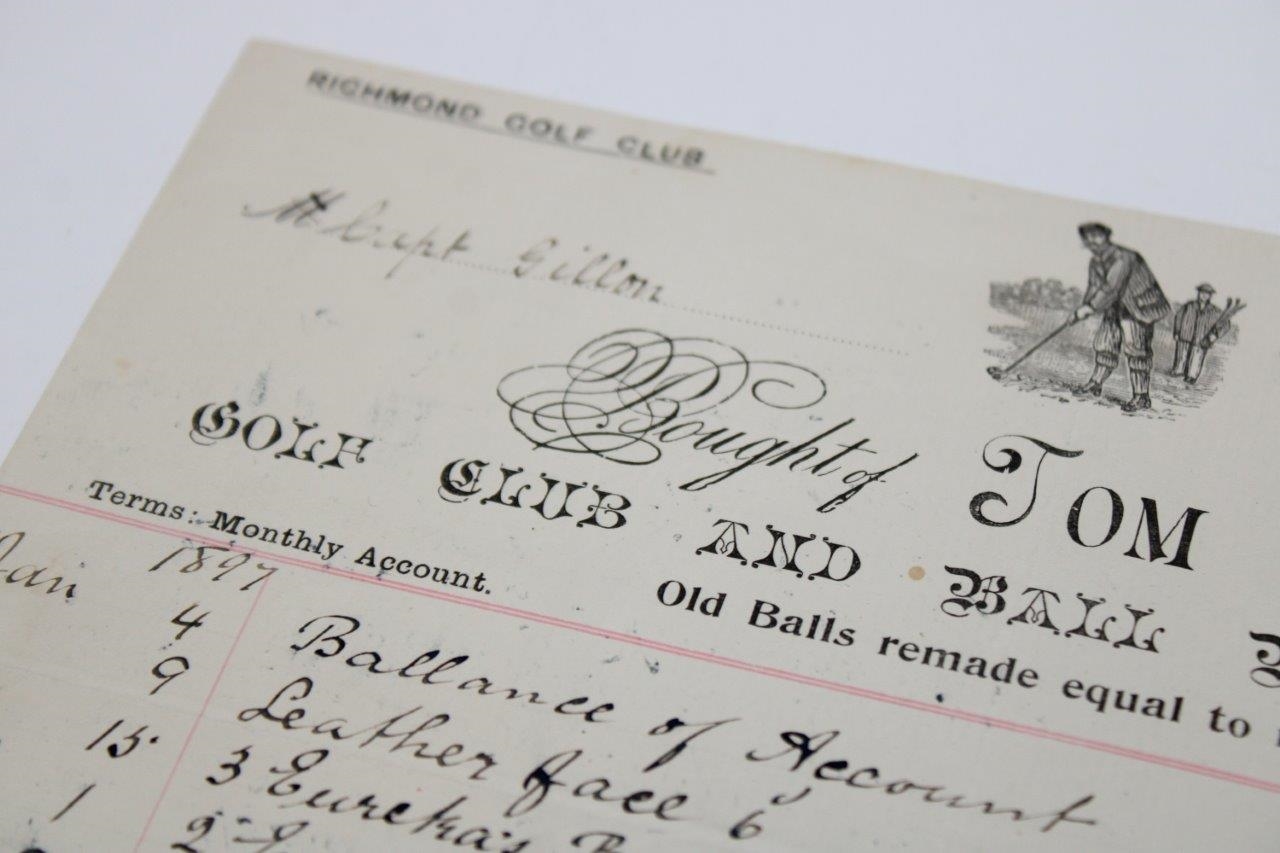 RICHMOND GOLF CLUB
M Capt Gillon
Bought of TOM
GOLF CLUB AND BALL
Terms: Monthly Account.
Old Balls remade equal to
Jan 1897
4 Ballance of Account
9 Leather face 6
15 3 Eureka's
1 2